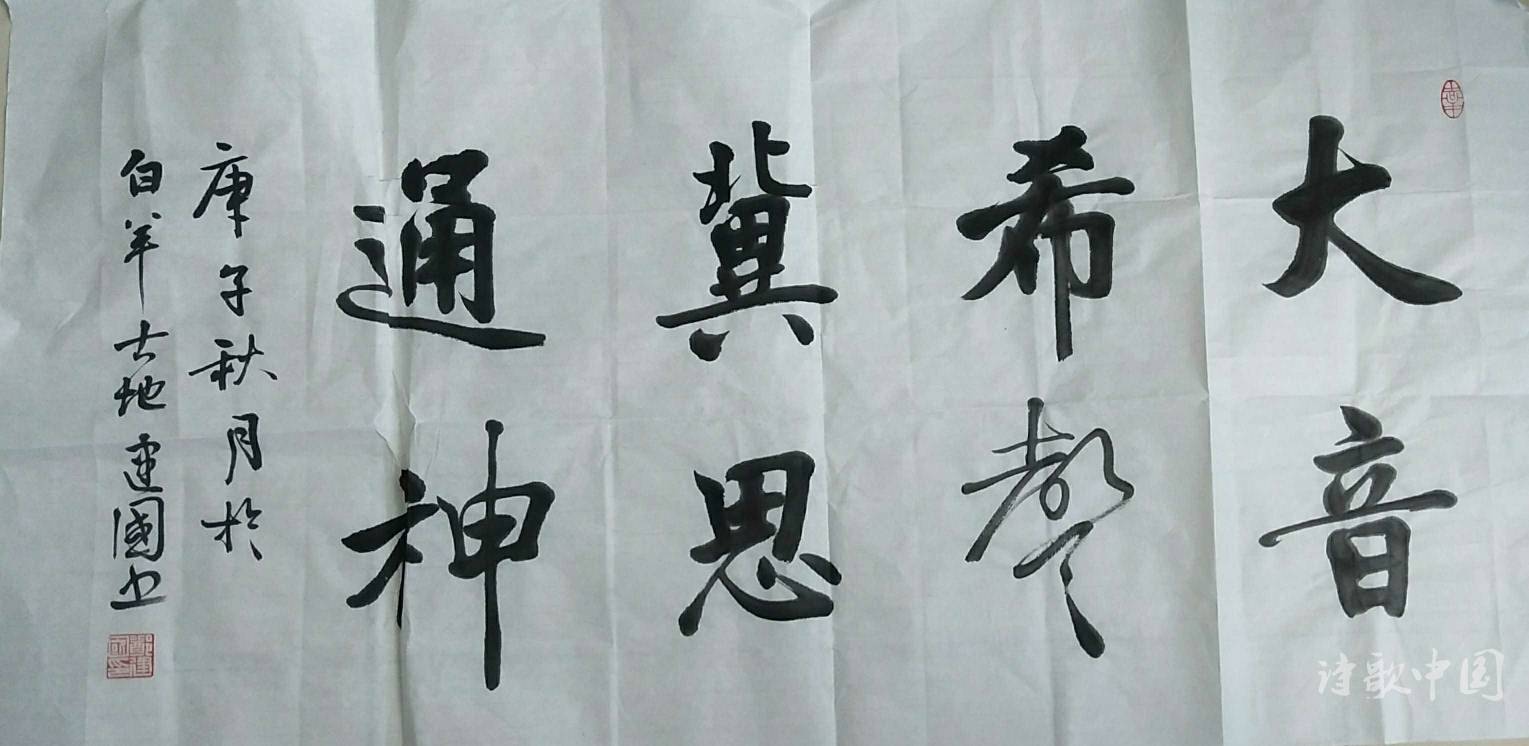 大音
希聲
冀思
通神
庚子秋月於
白羊古地建國书
诗歌中国